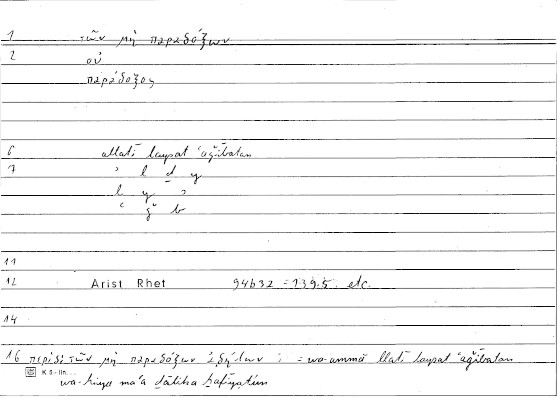 1 τῶν μὴ παραδόξων
2 οὐ
παράδοξος
6 allatī laysat ʿaǧībatan
7 ʾ l d y
l y s
ʿ ǧ b
11
12 Arist Rhet 94b32 = 139.5, etc.
14
16 περὶ δὲ τῶν μὴ παραδόξων ἀδήλων : = wa-ammā llatī laysat ʿaǧībatan
wa-hiya maʿa ḏālika ḫafīyatun